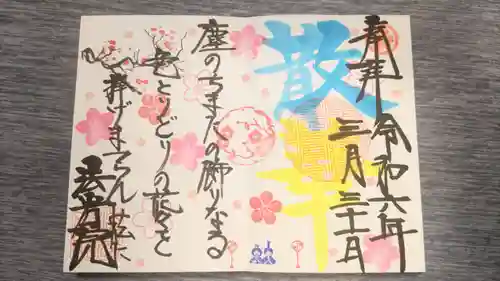 奉拝
令和六年
三月三十日
散華
塵のちまたの飾りなる
色とりどりの花を
捧げまつらん仏に